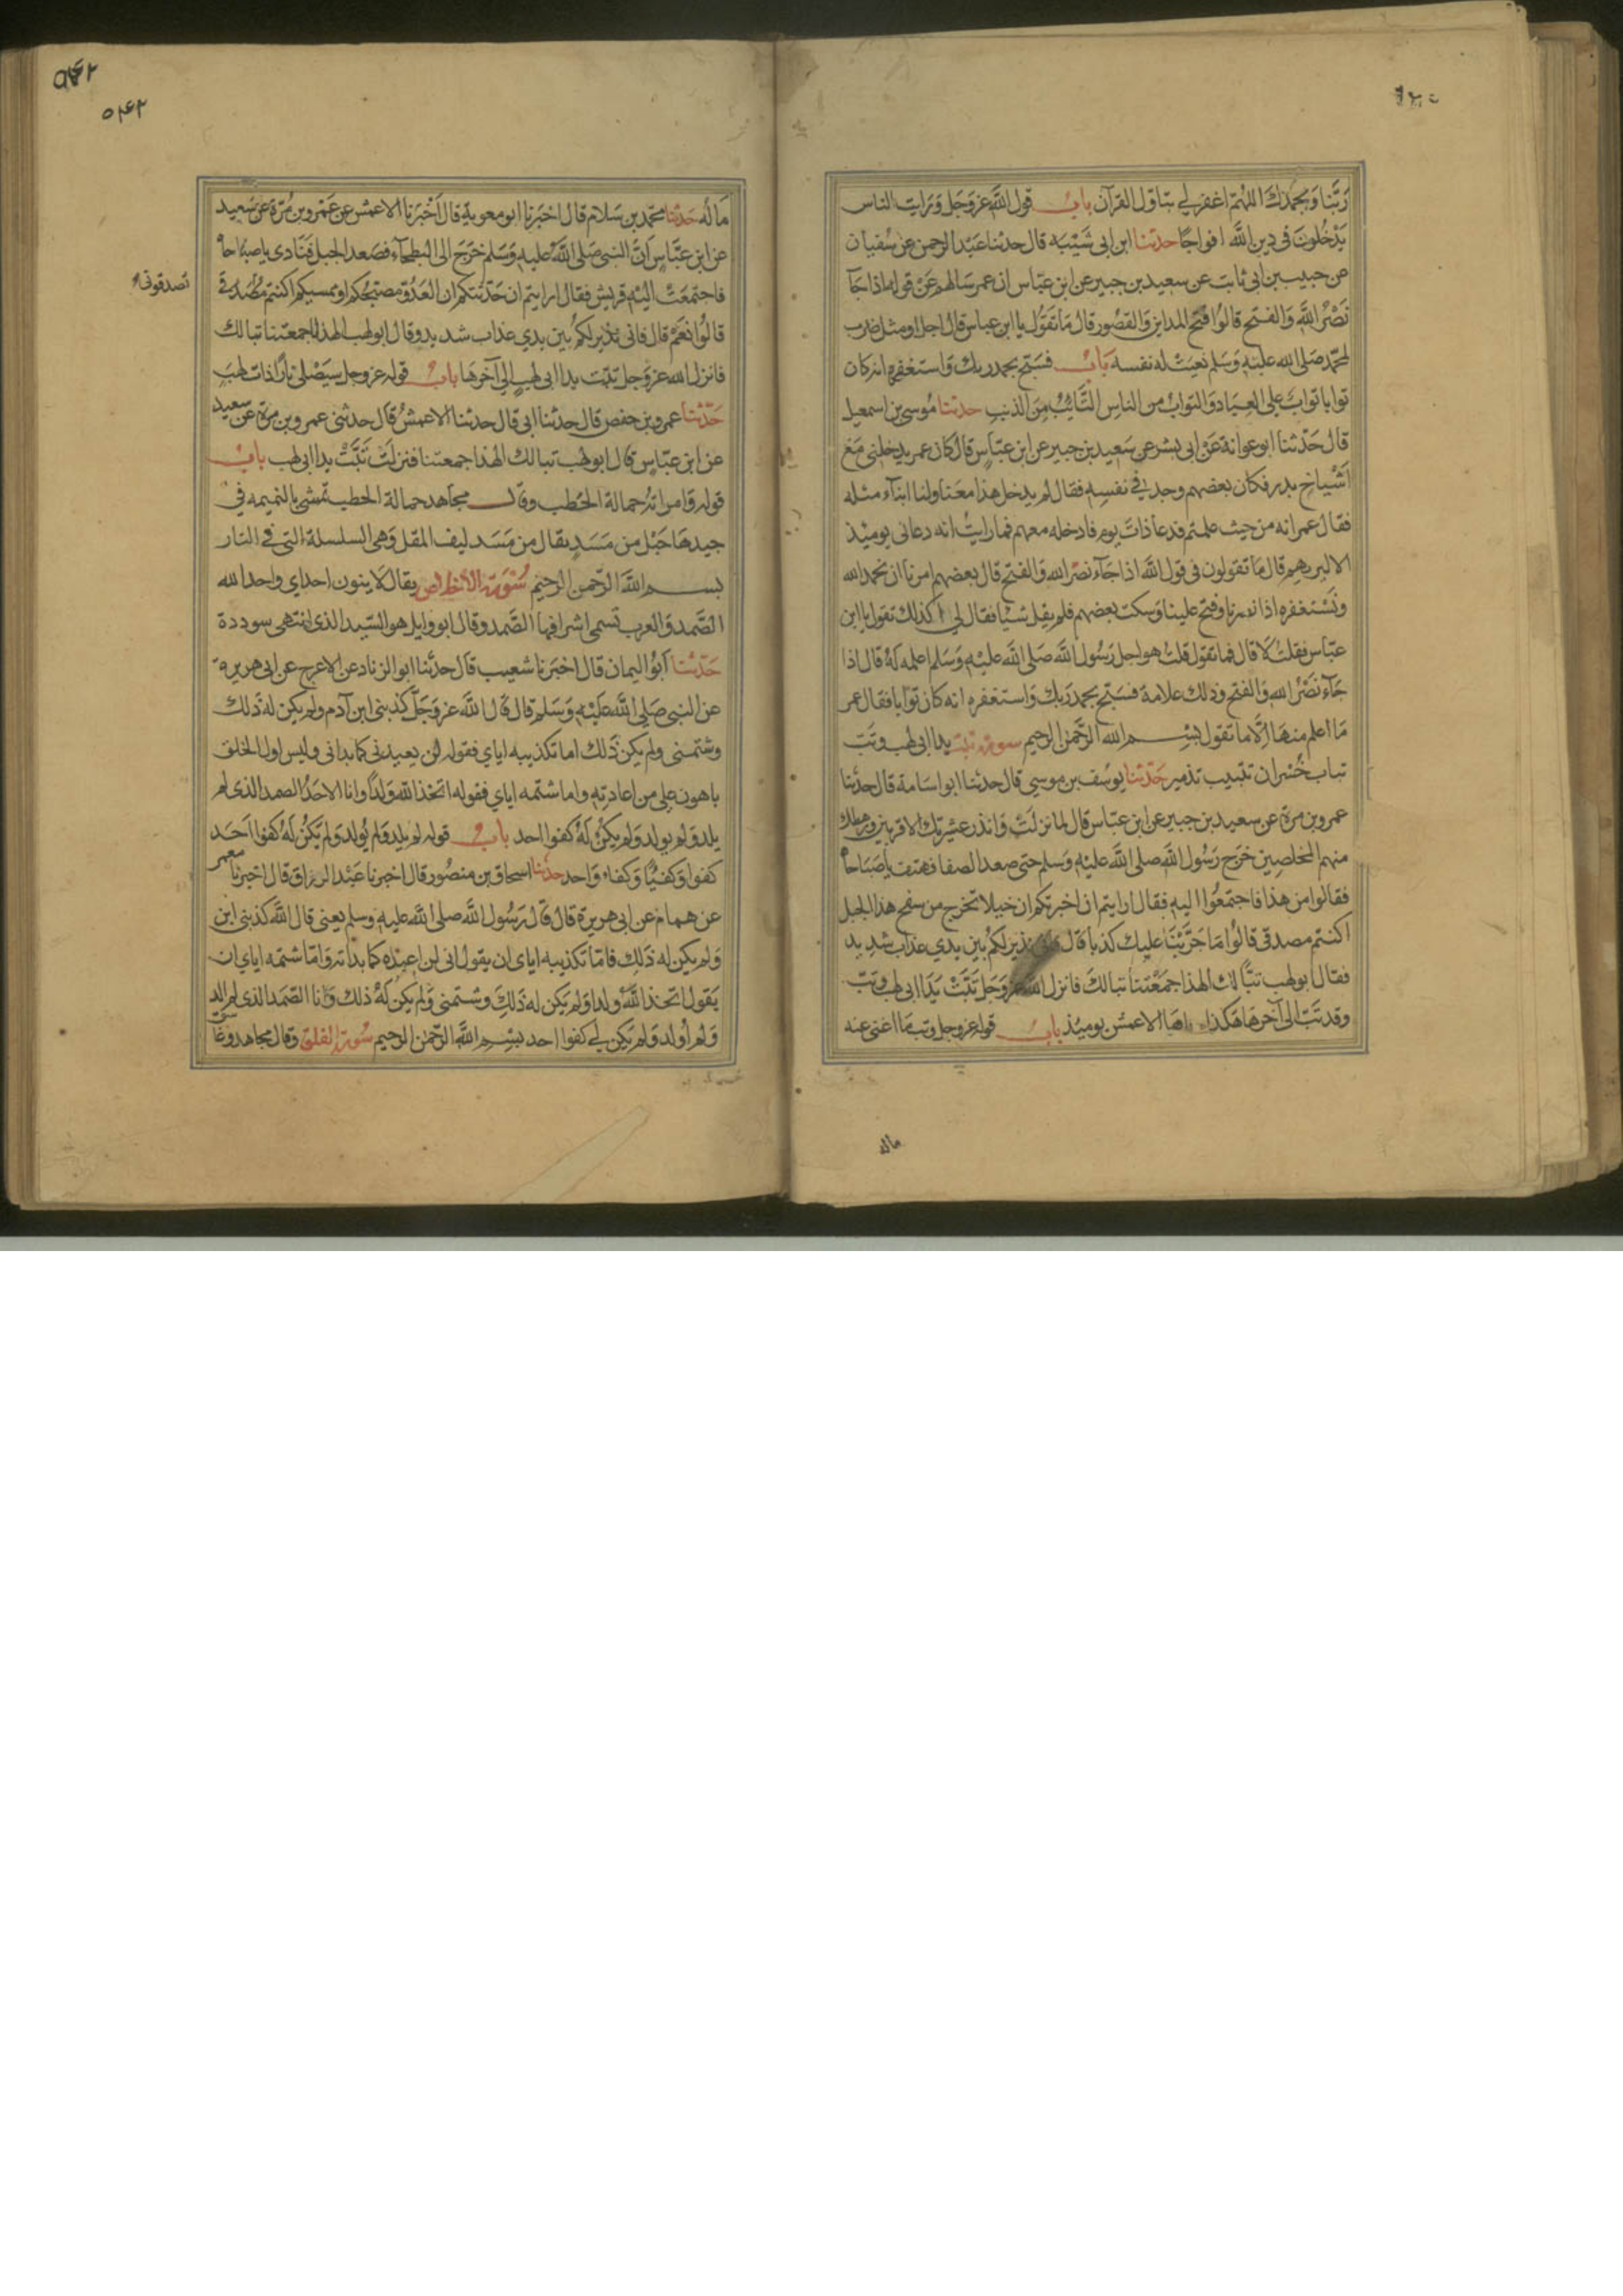 ربنا وبحمدك اللهم اغفر لي يتاول القرآن باب قول الله عز وجل ورايت الناس
يدخلون في دين الله افواجا حدثنا ابن ابي شيبه قال حدثنا عبد الرحمن عن سفيان
عن حبيب بن ابي ثابت عن سعيد بن جبير عن ابن عباس ان عمر سالهم عن قوله اذا جآ
نصر الله والفتح قالوا فتح المداين والقصور قال ما تقول يا ابن عباس قال اجل او مثل ضرب
لمحمد صلى الله عليه وسلم نعيت له نفسه باب فسبح بحمد ربك واستغفره انه كان
توابا تواب على العباد والتواب من الناس التائب من الذنب حدثنا موسى بن اسمعيل
قال حدثنا ابو عوانة عن ابي بشر عن سعيد بن جبير عن ابن عباس قال كان عمر يدخلني مع
اشياخ بدر فكان بعضهم وجد في نفسه فقال لم يدخل هذا معنا ولنا ابنآء مثله
فقال عمر انه من حيث علمتم فدعا ذات يوم فادخله معهم فما رايت انه دعاني يوميذ
الا ليريهم قال ما تقولون في قول الله اذا جآء نصر الله والفتح قال بعضهم امرنا ان نحمد الله
ونستغفره اذا نصرنا وفتح علينا وسكت بعضهم فلم يقل شيا فقال لي اكذلك تقول يا ابن
عباس فقلت لا قال فما تقول قلت هو اجل رسول الله صلى الله عليه وسلم اعلمه له قال اذا
جآء نصر الله والفتح وذلك علامة فسبح بحمد ربك واستغفره انه كان توابا فقال عمر
ما اعلم منها الا ما تقول بسم الله الرحمن الرحيم سورة تبت يدا ابي لهب وتب
تباب خسران تتبيب تدمير حدثنا يوسف بن موسي قال حدثنا ابو اسامة قال حدثنا
عمرو بن مرة عن سعيد بن جبير عن ابن عباس قال لما نزلت وانذر عشيرتك الاقربين ورهطك
منهم المخلصين خرج رسول الله صلى الله عليه وسلم حتى صعد الصفا فهتف يا صباحاه
فقالوا من هذا فاجتمعوا اليه فقال ارايتم ان اخبرتكم ان خيلا تخرج من سفح هذا الجبل
اكنتم مصدقي قالوا ما جربنا عليك كذبا قال نذير لكم بين يدي عذاب شديد
فقال ابو لهب تبا لك الهذا جمعتنا تبا لك فانزل الله عز وجل تبت يدا ابي لهب وتب
وقد تب الى آخرها هكذا الاعمش يوميذ باب قوله عز وجل وتب ما اغنى عنه
ماله
٥٤٢
٥٤٢
ماله حدثنا محمد بن سلام قال اخبرنا ابو معوية قال اخبرنا الاعمش عن عمرو بن مرة عن سعيد
عن ابن عباس ان النبي صلى الله عليه وسلم خرج الى البطحآء فصعد الجبل فنادى يا صباحاه
فاجتمعت اليه قريش فقال ارايتم ان حدثتكم ان العدو مصبحكم او ممسيكم اكنتم مصدقي
تصدقوني
قالوا نعم قال فاني نذير لكم بين يدي عذاب شديد وقال ابو لهب الهذا جمعتنا تبا لك
فانزل الله عز وجل تبت يدا ابي لهب الي آخرها باب قوله عز وجل سيصلى نارا ذات لهب
حدثنا عمرو بن حفص قال حدثنا ابي قال حدثنا الاعمش قال حدثني عمرو بن مرة عن سعيد
عن ابن عباس قال ابو لهب تبا لك الهذا جمعتنا فنزلت تبت يدا ابي لهب باب
قوله وامراته حمالة الحطب وقال مجاهد حمالة الحطب تمشي بالنميمه في
جيدها حبل من مسد يقال من مسد ليف المقل وهي السلسلة التي في النار
بسم الله الرحمن الرحيم سورة الاخلاص يقال لا ينون احد اي واحد الله
الصمد والعرب تسمى اشرافها الصمد وقال ابو وايل هو السيد الذي انتهى سودده
حدثنا ابو اليمان قال اخبرنا شعيب قال حدثنا ابو الزناد عن الاعرج عن ابي هريرة
عن النبي صلى الله عليه وسلم قال قال الله عز وجل كذبني ابن آدم ولم يكن له ذلك
وشتمني ولم يكن ذلك اما تكذيبه اياي فقوله لن يعيدني كما بداني وليس اول الخلق
باهون علي من اعادته واما شتمه اياي فقوله اتخذ الله ولدا وانا الاحد الصمد الذي لم
يلد ولم يولد ولم يكن له كفوا احد باب قوله لم يلد ولم يولد ولم يكن له كفوا احد
كفوا وكفيئا وكفاء واحد حدثنا اسحاق بن منصور قال اخبرنا عبد الرزاق قال اخبرنا معمر
عن همام عن ابي هريرة قال قال رسول الله صلى الله عليه وسلم يعني قال الله كذبني ابن
ولم يكن له ذلك فاما تكذيبه اياي ان يقول اني لن اعيده كما بداته واما شتمه اياي ان
يقول اتخذ الله ولدا ولم يكن له ذلك وشتمني ولم يكن له ذلك وانا الصمد الذي لم الد
ولم اولد ولم يكن لي كفوا احد بسم الله الرحمن الرحيم سورة الفلق وقال مجاهد وغا سق